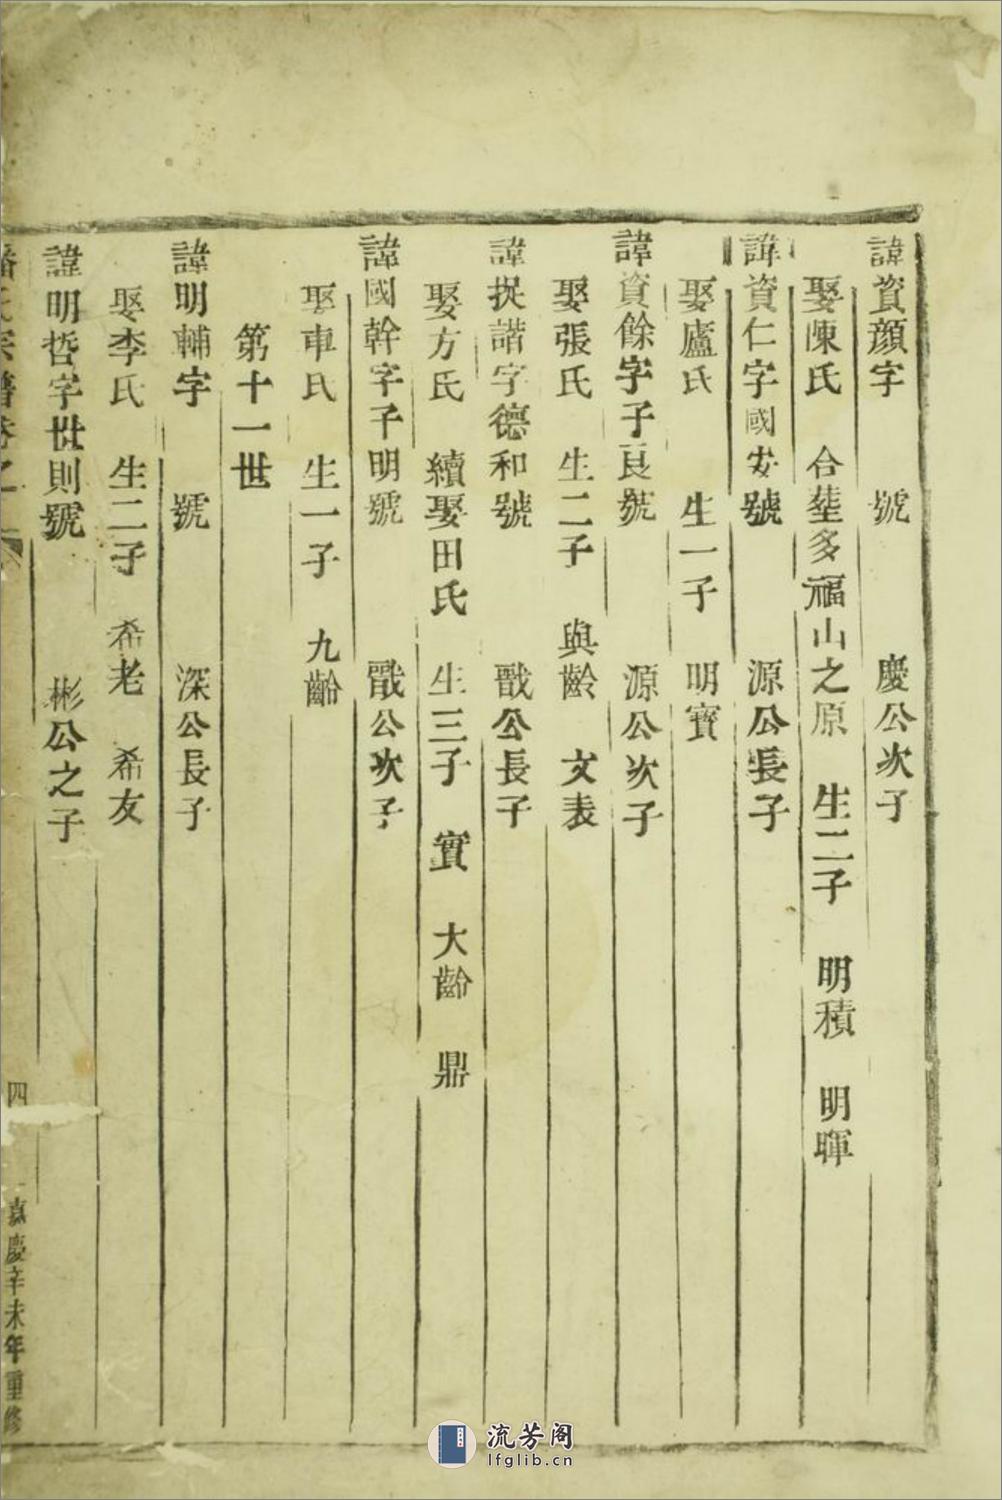 諱資顔字 號 慶公次子
娶陳氏 合塟多福山之原 生二子 明積 明暉
諱資仁字國安號 源公長子
娶廬氏 生一子 明寳
諱資餘字子良號 源公次子
娶張氏 生二子 與齡 文表
諱捉諧字德和號 戬公長子
娶方氏 續娶田氏 生三子 實 大齡 鼎
諱國幹字子明號 戬公次子
娶車氏 生一子 九齡
第十一世
諱明輔字 號 深公長子
娶李氏 生二子 希老 希友
諱明哲字世則號 彬公之子
潘氏宗譜卷之一 四 嘉慶辛未年重修
流芳阁
lfglib.cn